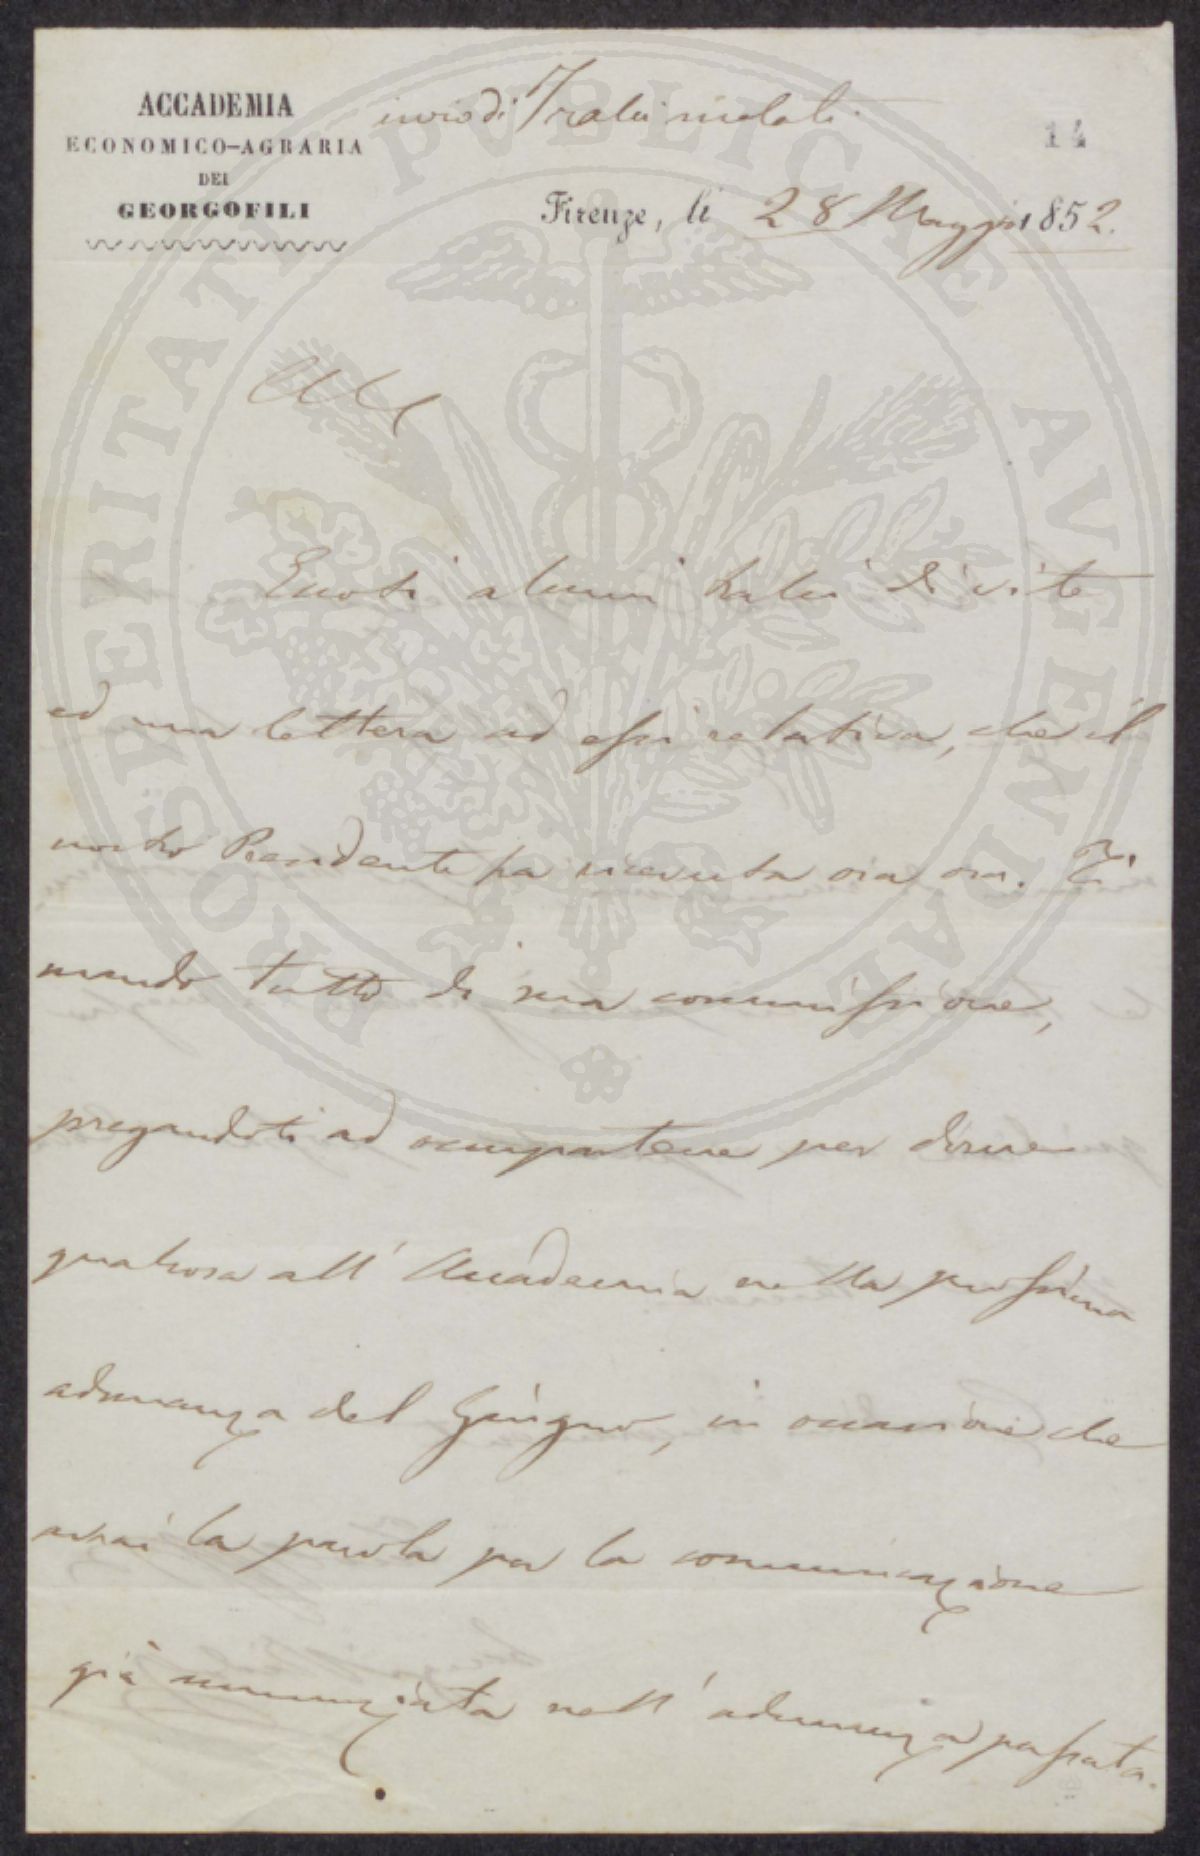 ACCADEMIA
ECONOMICO-AGRARIA
DEI
GEORGOFILI
invio di Tralci malati
14
Firenze, li 28 Maggio 1852.
Eccoti alcuni tralci di vite
ed una lettera ad essi relativa, che il
nostro Presidente ha ricevuta ora ora. Ti
mando tutto di sua commissione,
pregandoti ad occupartene per dirne
qualcosa all'Accademia nella prossima
adunanza del Giugno, in occasione che
avrai la parola per la comunicazione
già annunziata nell'adunanza passata.
PROSPERITATI PVBLICAE AVGENDAE